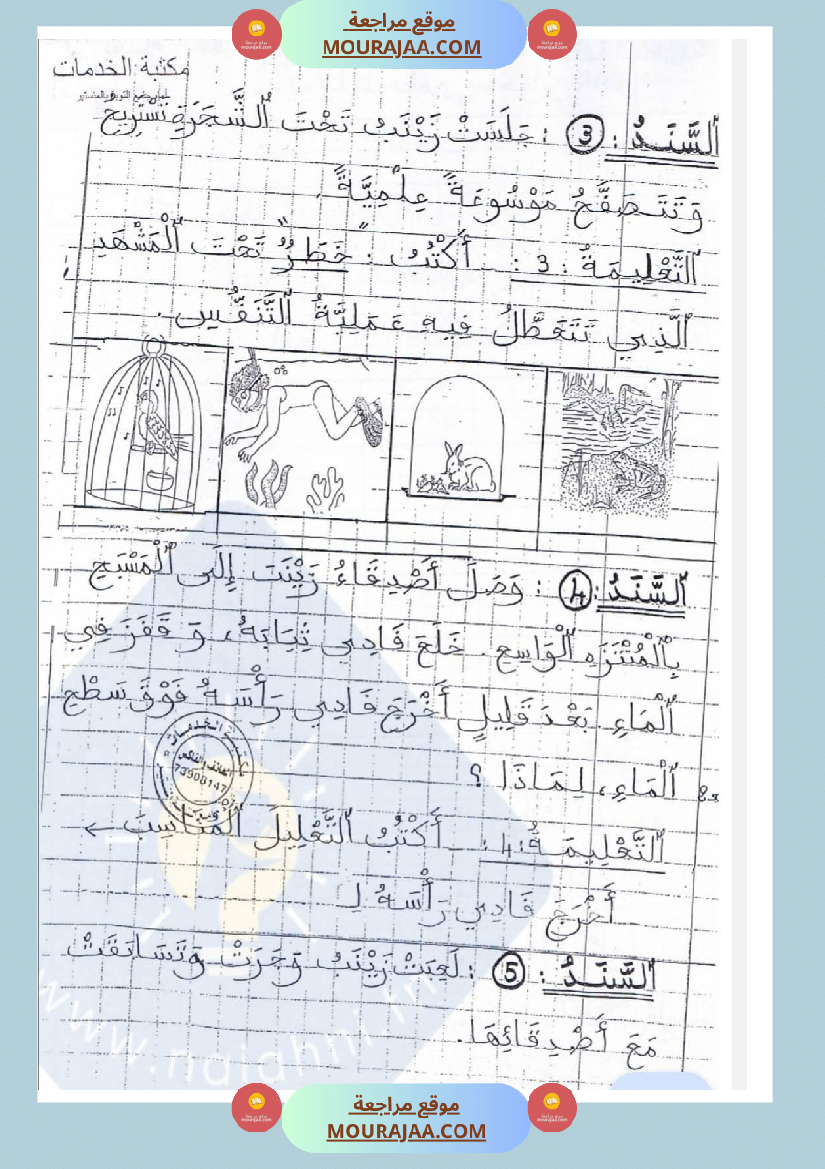 موقع مراجعة
MOURAJAA.COM
مكتبة الخدمات
اَلسَّنَدُ : 3 : جَلَسَتْ زَيْنَبُ تَحْتَ اَلشَّجَرَةِ تَسْتَرِيحُ
وَتَتَصَفَّحُ مَوْسُوعَةً عِلْمِيَّةً.
اَلتَّعْلِيمَةُ : 3 : أَكْتُبُ : "خَطَرٌ" تَحْتَ اَلْمَشْهَدِ
اَلَّذِي تَتَعَطَّلُ فِيهِ عَمَلِيَّةُ اَلتَّنَفُّسِ.
اَلسَّنَدُ : 4 : وَصَلَ أَصْدِقَاءُ زَيْنَبَ إِلَى اَلْمَسْبَحِ
بِالْمُنْتَزَهِ اَلْوَاسِعِ. خَلَعَ فَادِي ثِيَابَهُ، وَ قَفَزَ فِي
اَلْمَاءِ بَعْدَ قَلِيلٍ أَخْرَجَ فَادِي رَأْسَهُ فَوْقَ سَطْحِ
اَلْمَاءِ، لِمَاذَا ؟
اَلتَّعْلِيمَةُ : 4 : أَكْتُبُ اَلتَّعْلِيلَ اَلْمُنَاسِبَ ←
أَخْرَجَ فَادِي رَأْسَهُ لِـ
اَلسَّنَدُ : 5 : لَعِبَتْ زَيْنَبُ وَجَرَتْ وَتَسَابَقَتْ
مَعَ أَصْدِقَائِهَا.
www.najahni.tn
موقع مراجعة
MOURAJAA.COM